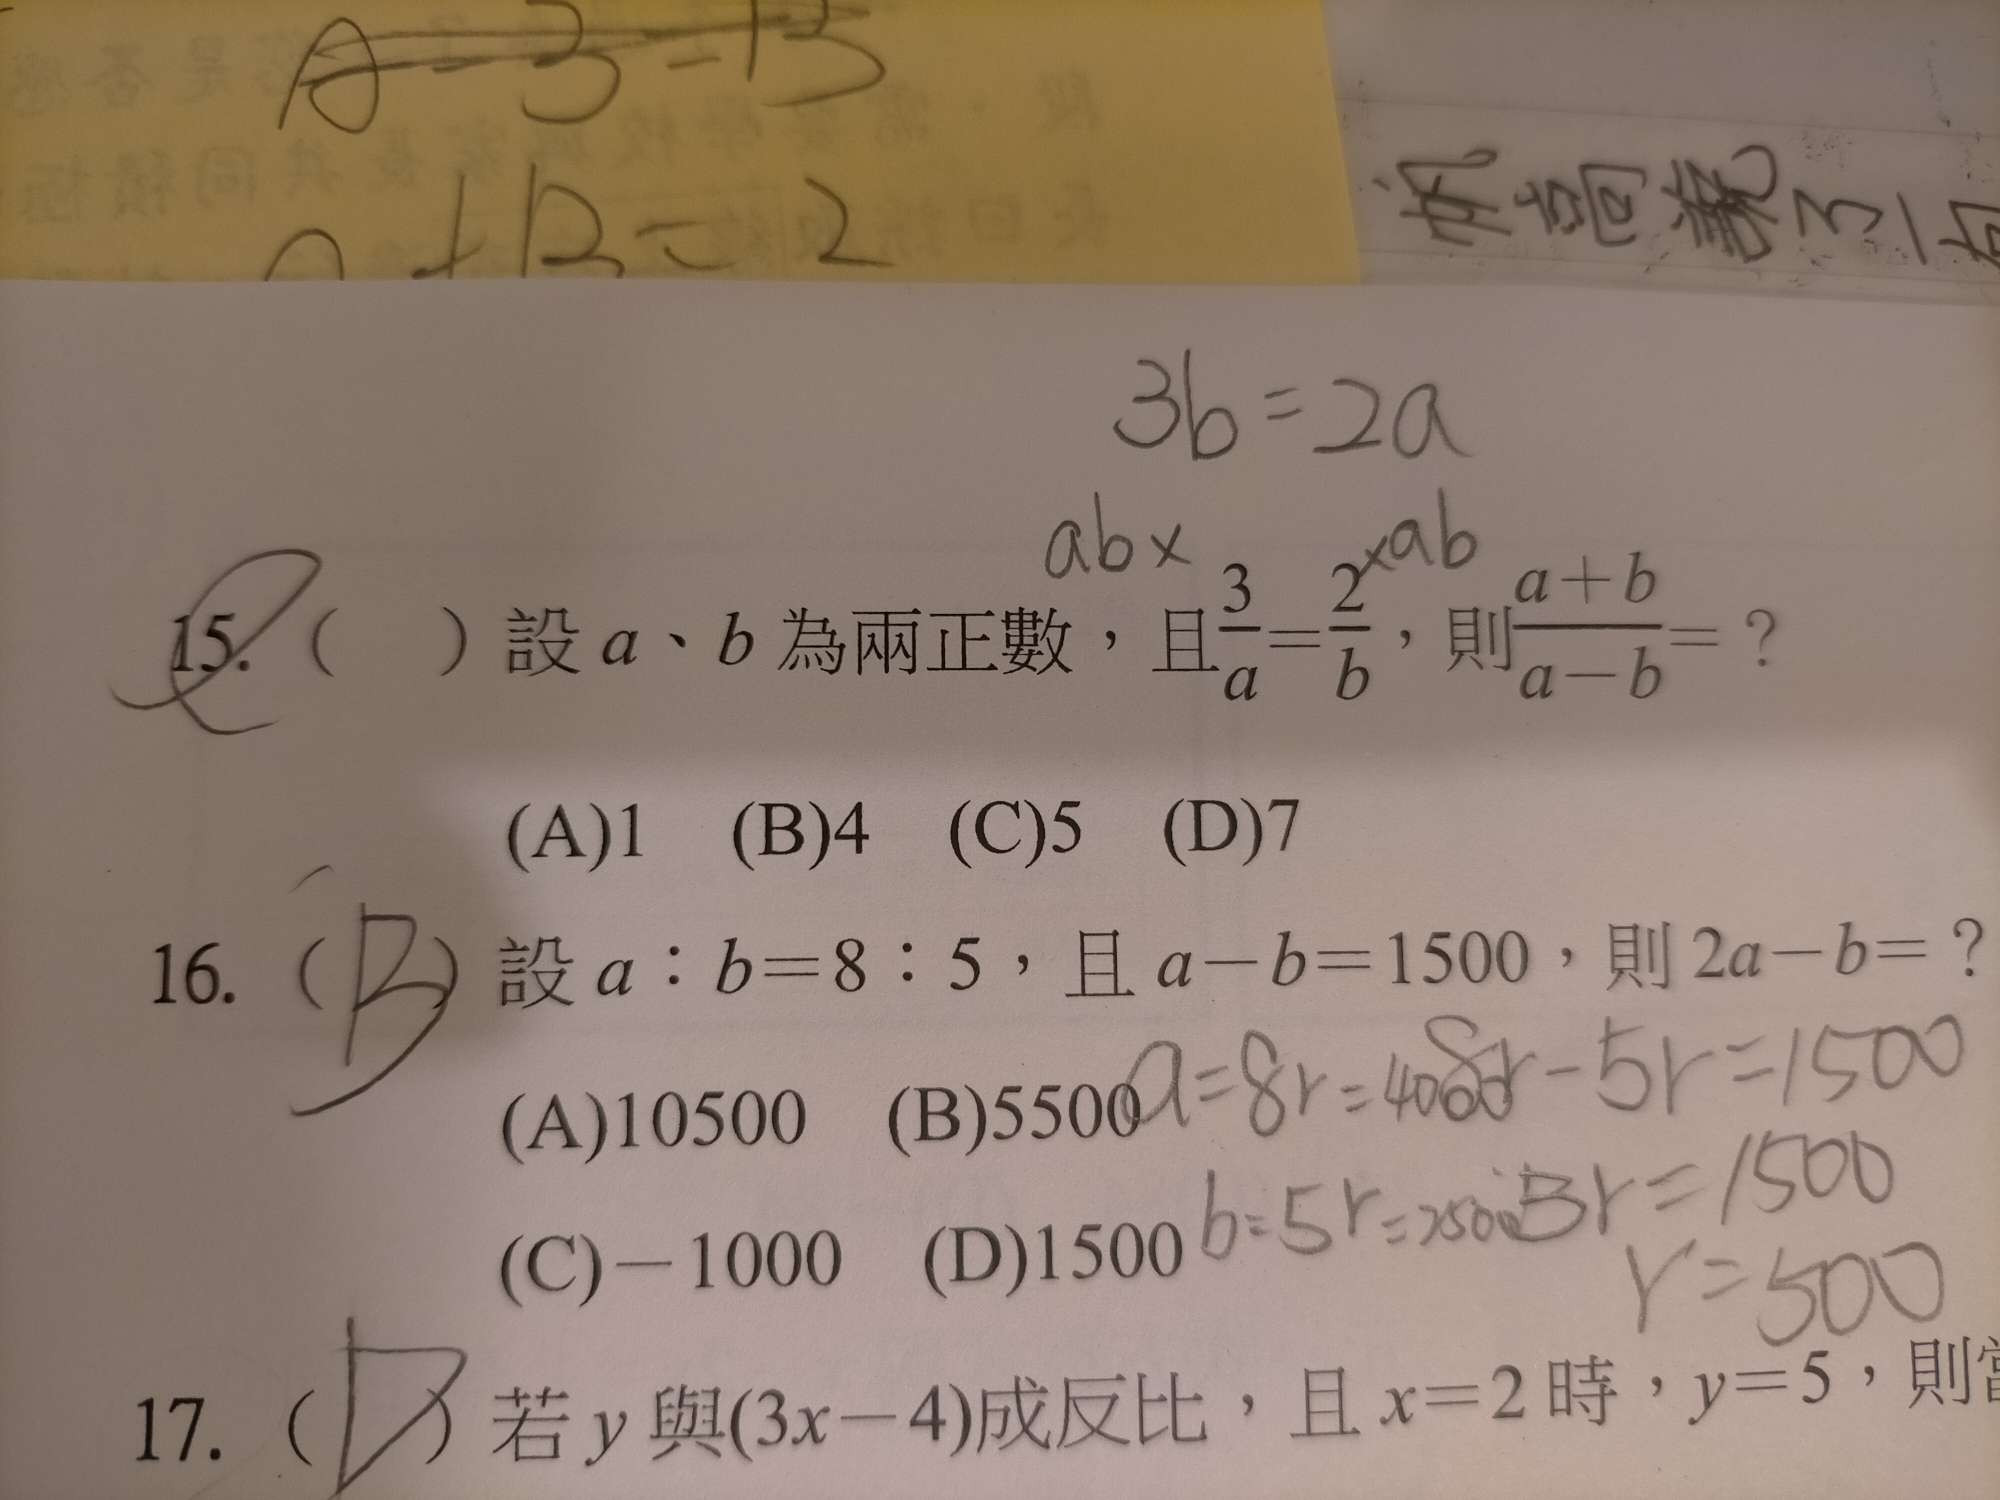 A-3=B
A+B=2
3b=2a
abx xab
15. ( ) 設 a、b 為兩正數，且3/a=2/b，則a+b/a-b=？
(A)1 (B)4 (C)5 (D)7
16. (B) 設 a：b=8：5，且 a-b=1500，則 2a-b=？
a=8r=4000 8r-5r=1500
(A)10500 (B)5500
b=5r=2500 3r=1500
(C)-1000 (D)1500
r=500
17. (D) 若 y 與(3x-4)成反比，且 x=2 時，y=5，則當